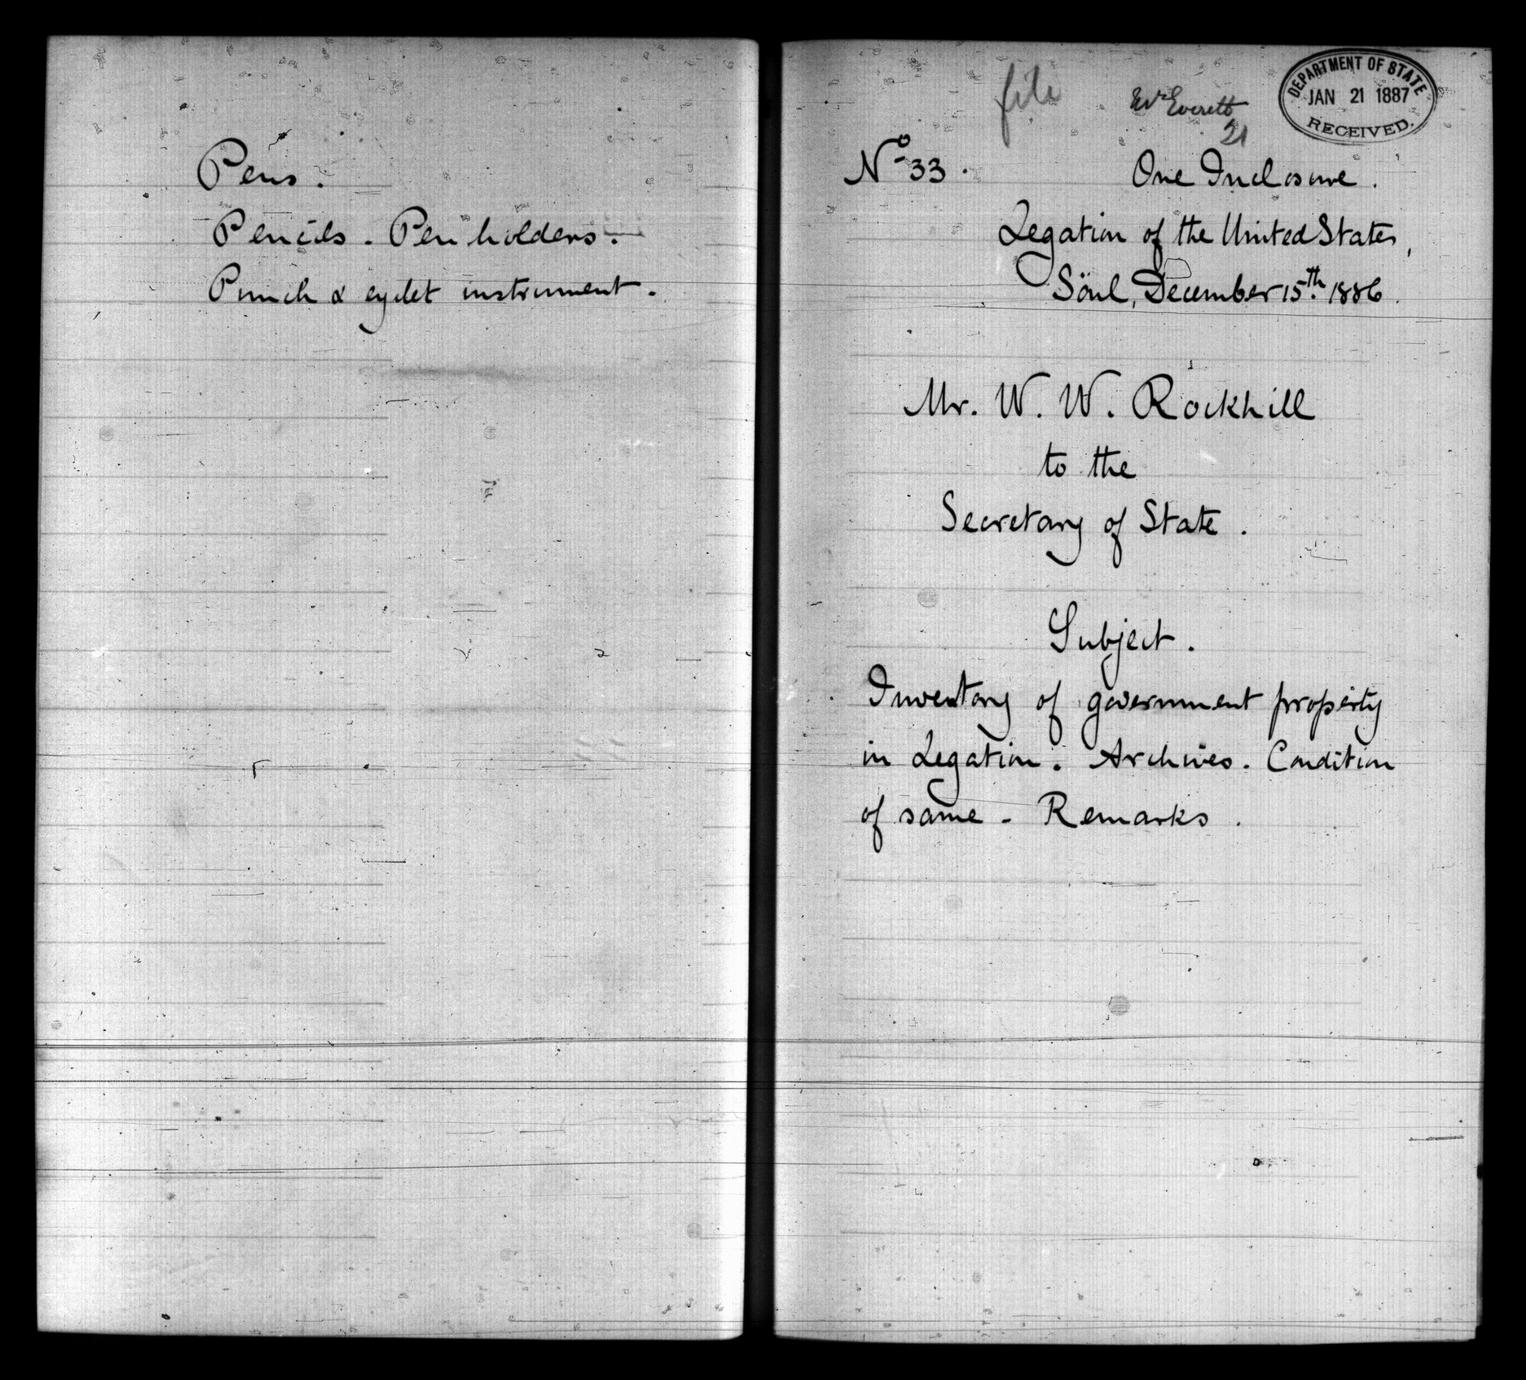 Pens.
Pencils. Penholders.
Punch & eyelet instrument.
file
Mr Everett
21
DEPARTMENT OF STATE
JAN 21 1887
RECEIVED.
Nº 33. One Inclosure.
Legation of the United States,
Söul, December 15th. 1886.
Mr. W. W. Rockhill
to the
Secretary of State.
Subject.
Inventory of government property
in Legation. Archives. Condition
of same - Remarks.